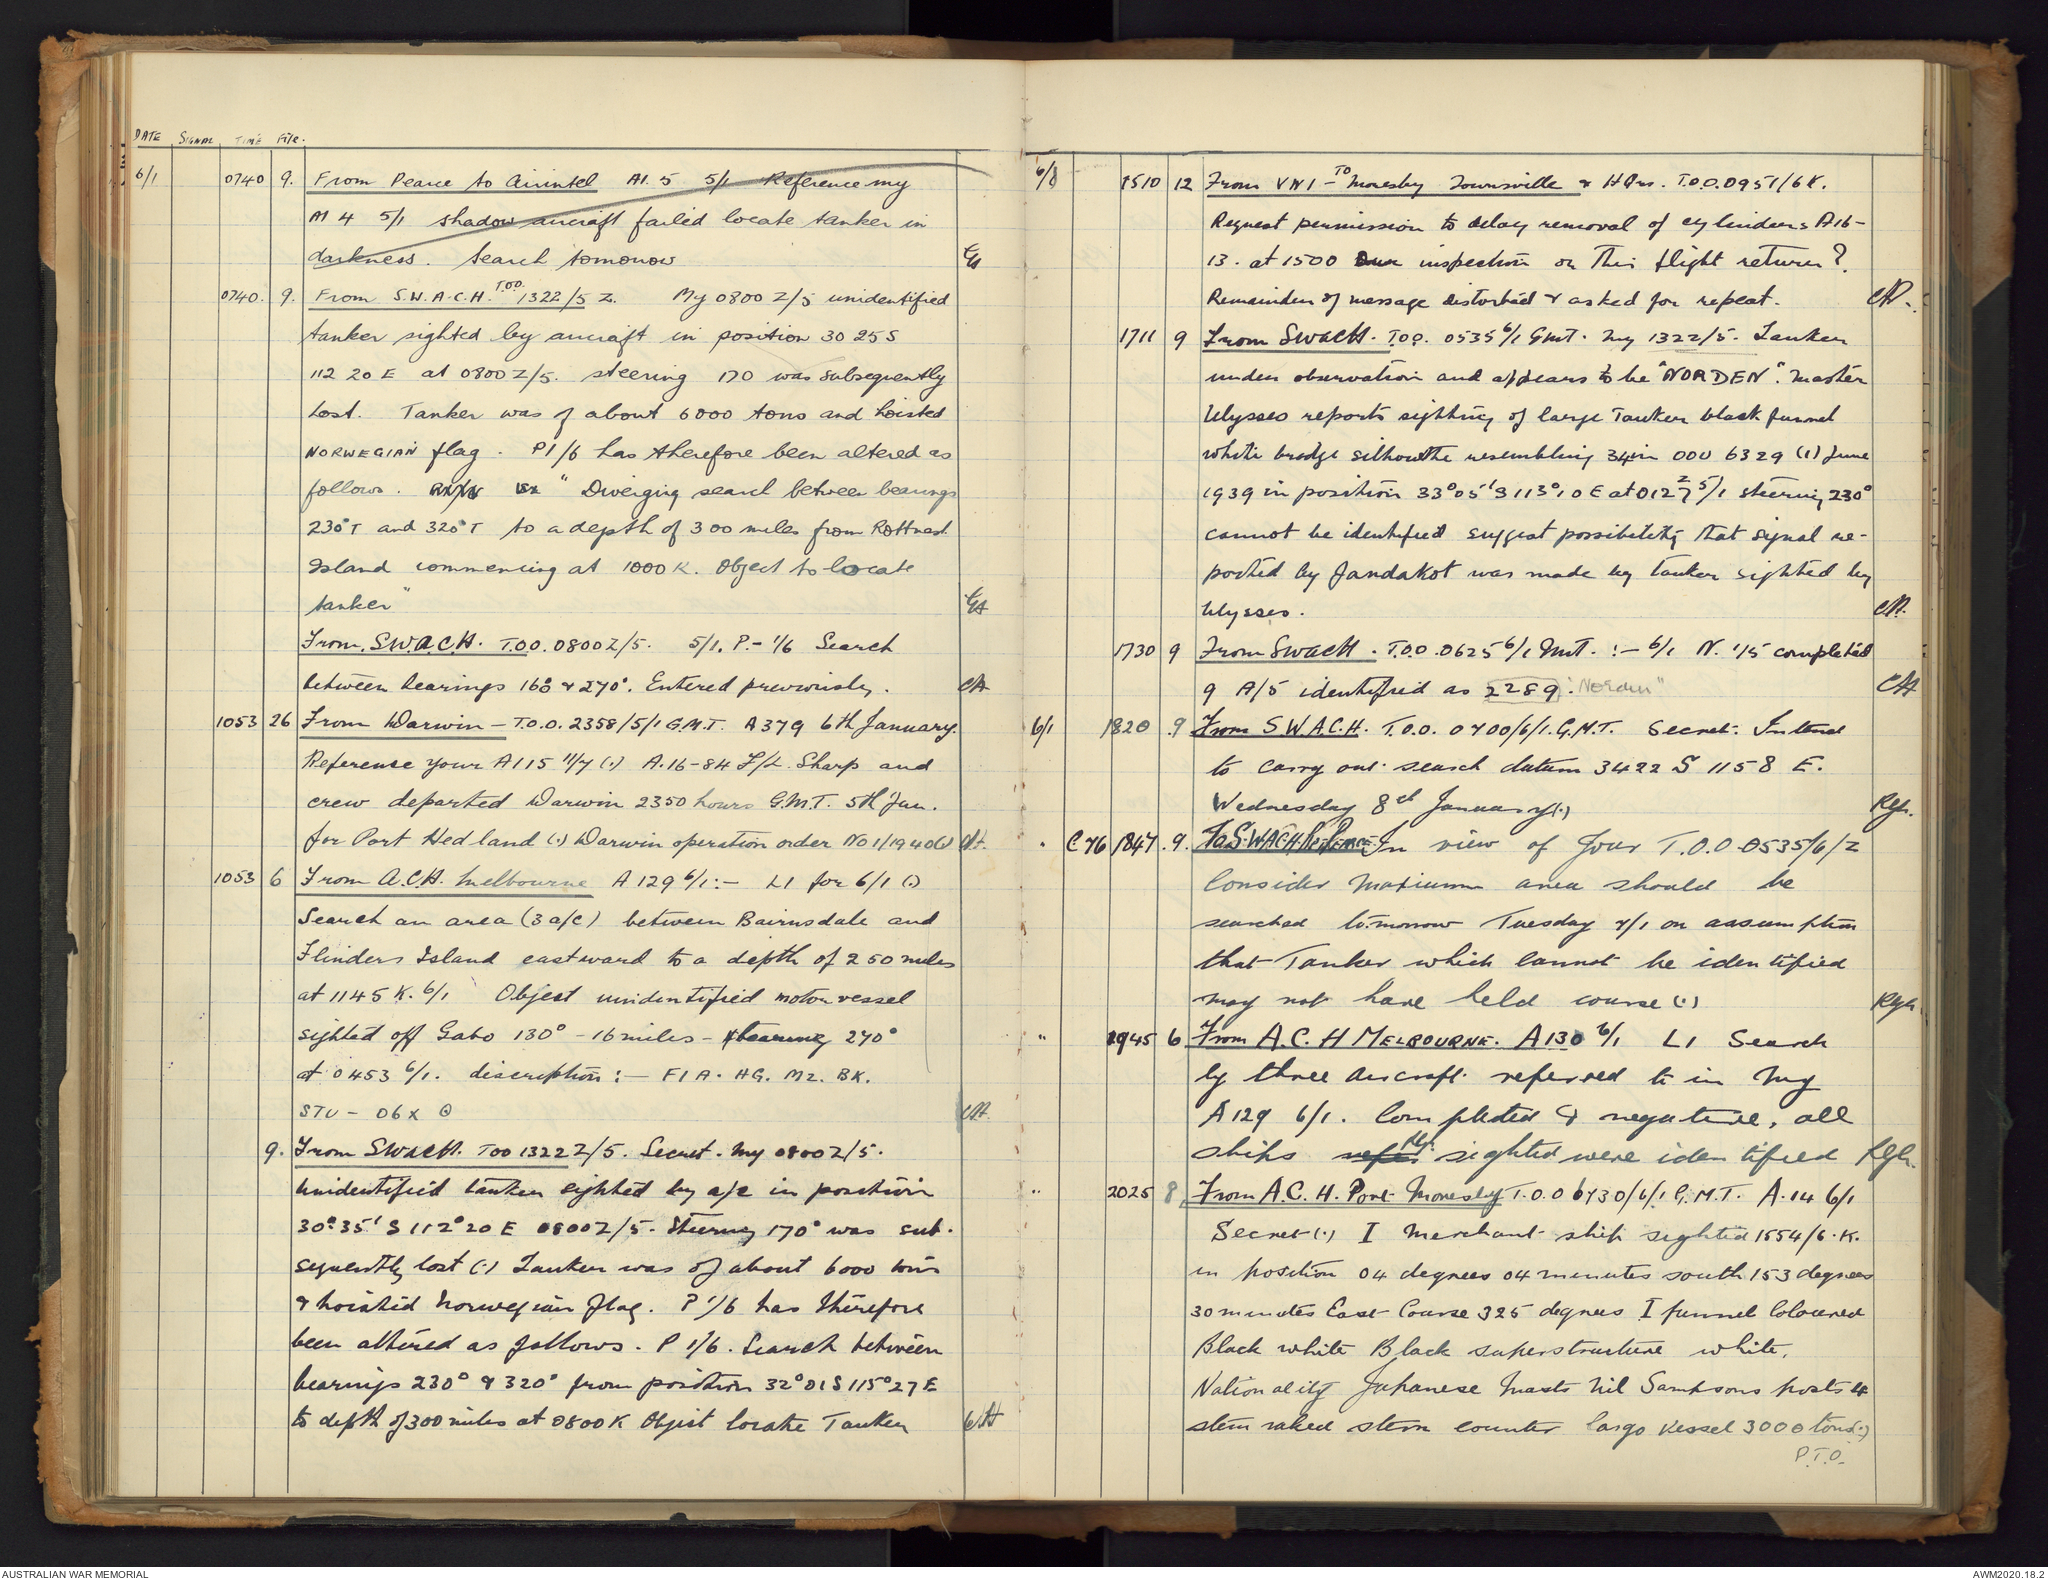 DATE SIGNAL TIME File.
6/1 0740 9. From Pearce to Airintel A1.5 5/1 Reference my
A1 4 5/1 shadow aircraft failed locate tanker in
darkness. Search tomorrow
0740. 9. From S.W.A.C.H. T.O.O. 1322/5 Z. My 0800 Z/5 unidentified
tanker sighted by aircraft in position 30 25 S
112 20 E at 0800Z/5. steering 170 was subsequently
lost. Tanker was of about 6000 tons and hoisted
NORWEGIAN flag. P1/6 has therefore been altered as
follows. "Diverging search between bearings
230°T and 320°T to a depth of 300 miles from Rottnest
Island commencing at 1000 K. Object to locate
tanker"
From S.W.A.C.H. T.O.O. 0800Z/5. 5/1. P.- 1/6 Search
between bearings 160 & 270°. Entered previously. CH
1053 26 From Darwin - T.O.O. 2358/5/1 G.M.T. A379 6th January.
Reference your A115 11/7 (.) A.16-84 F/L Sharp and
crew departed Darwin 2350 hours G.M.T. 5th Jan.
for Port Hedland (.) Darwin operation order No 1/1940(.) CH.
1053 6 From A.C.H. Melbourne A 129 6/1:- L1 for 6/1 (.)
Search an area (3 a/c) between Bairnsdale and
Flinders Island eastward to a depth of 250 miles
at 1145 K. 6/1 Object unidentified motor vessel
sighted off Gabo 130° - 16 miles - bearing 270°
at 0453 6/1. discription:- F1A. HG. M2. BK.
STU - 06X CH.
9. From SWACH. TOO 1322Z/5. Secret. My 0800Z/5.
Unidentified tanker sighted by a/c in position
30°.35'S 112°20 E 0800Z/5. Steering 170° was sub-
sequently lost (.) Tanker was of about 6000 tons
& hoisted Norwegian flag. P 1/6 has therefore
been altered as follows. P 1/6. Search between
bearings 230° & 320° from position 32°01S 115°27E
to depth of 300 miles at 0800K Object locate Tanker CH
6/8 1510 12 From VN1 - To Moresby Townsville & HQrs. T.O.O.0951/6K.
Request permission to delay removal of cylinders A16-
13. at 1500 inspection on this flight return?
Remainder of message distorted & asked for repeat. CH.
1711 9 From SWACH. T.O.O. 0535 6/1 GMT. My 1322/5. Tanker
under observation and appears to be "NORDEN". Master
Ulysses reports sighting of large Tanker black funnel
white bridge silhouette resembling 34 in ODU 6329 (1) June
1939 in position 33°05'S 113°10 E at 0127Z 5/1 steering 230°
cannot be identified suggest possibility that signal re-
ported by Jandakot was made by tanker sighted by
Ulysses. CH.
1730 9 From SWACH. T.O.O. 0625 6/1 GMT. :- 6/1 N. 1/5 completed
9 A/5 identified as 2289. "Norden" CH
6/1 1820 9 From S.W.A.C.H. T.O.O. 0700/6/1.G.M.T. Secret. Intend
to carry out search datum 3422 S 1158 E.
Wednesday 8th January(.)
" C76 1847. 9. To S.WACH. Rp Pearce In view of Your T.O.O. 0535/6/Z
Consider Maximum area should be
searched tomorrow Tuesday 7/1 on assumption
that Tanker which cannot be identified
may not have held course (.)
" 1945 6 From A.C.H MELBOURNE. A130 6/1 L1 Search
by three aircraft referred to in My
A129 6/1. Completed & negative, all
ships sighted were identified
" 2025 8, From A.C.H. Port Moresby T.O.O 0730/6/1 G.M.T. A.14 6/1
Secret (.) I Merchant ship sighted 1554/6.K.
in position 04 degrees 04 minutes south 153 degrees
30 minutes East Course 325 degrees I funnel coloured
Black white Black superstructure white.
Nationality Japanese Masts Nil Sampsons posts 4
stem raked stern counter Cargo vessel 3000 tons(.)
P.T.O.
AUSTRALIAN WAR MEMORIAL
AWM2020.18.2